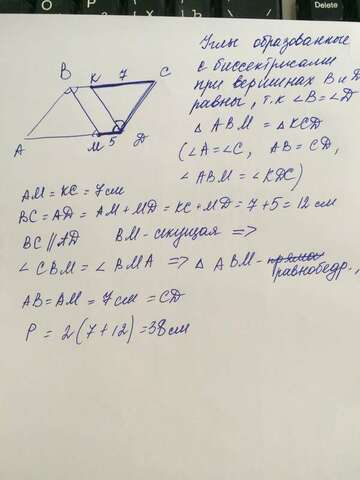 Углы образованные
с биссектрисами
при вершинах B и D
равны, т.к ∠B = ∠D
△ ABM = △KCD
(∠A = ∠C, AB = CD,
∠ ABM = ∠KDC)
B K 7 C
A M 5 D
AM = KC = 7 см
BC = AD = AM + MD = KC + MD = 7 + 5 = 12 см
BC || AD BM - секущая =>
∠ CBM = ∠ BMA => △ ABM - равнобедр.,
AB = AM = 7 см = CD
P = 2(7 + 12) = 38 см
Delete